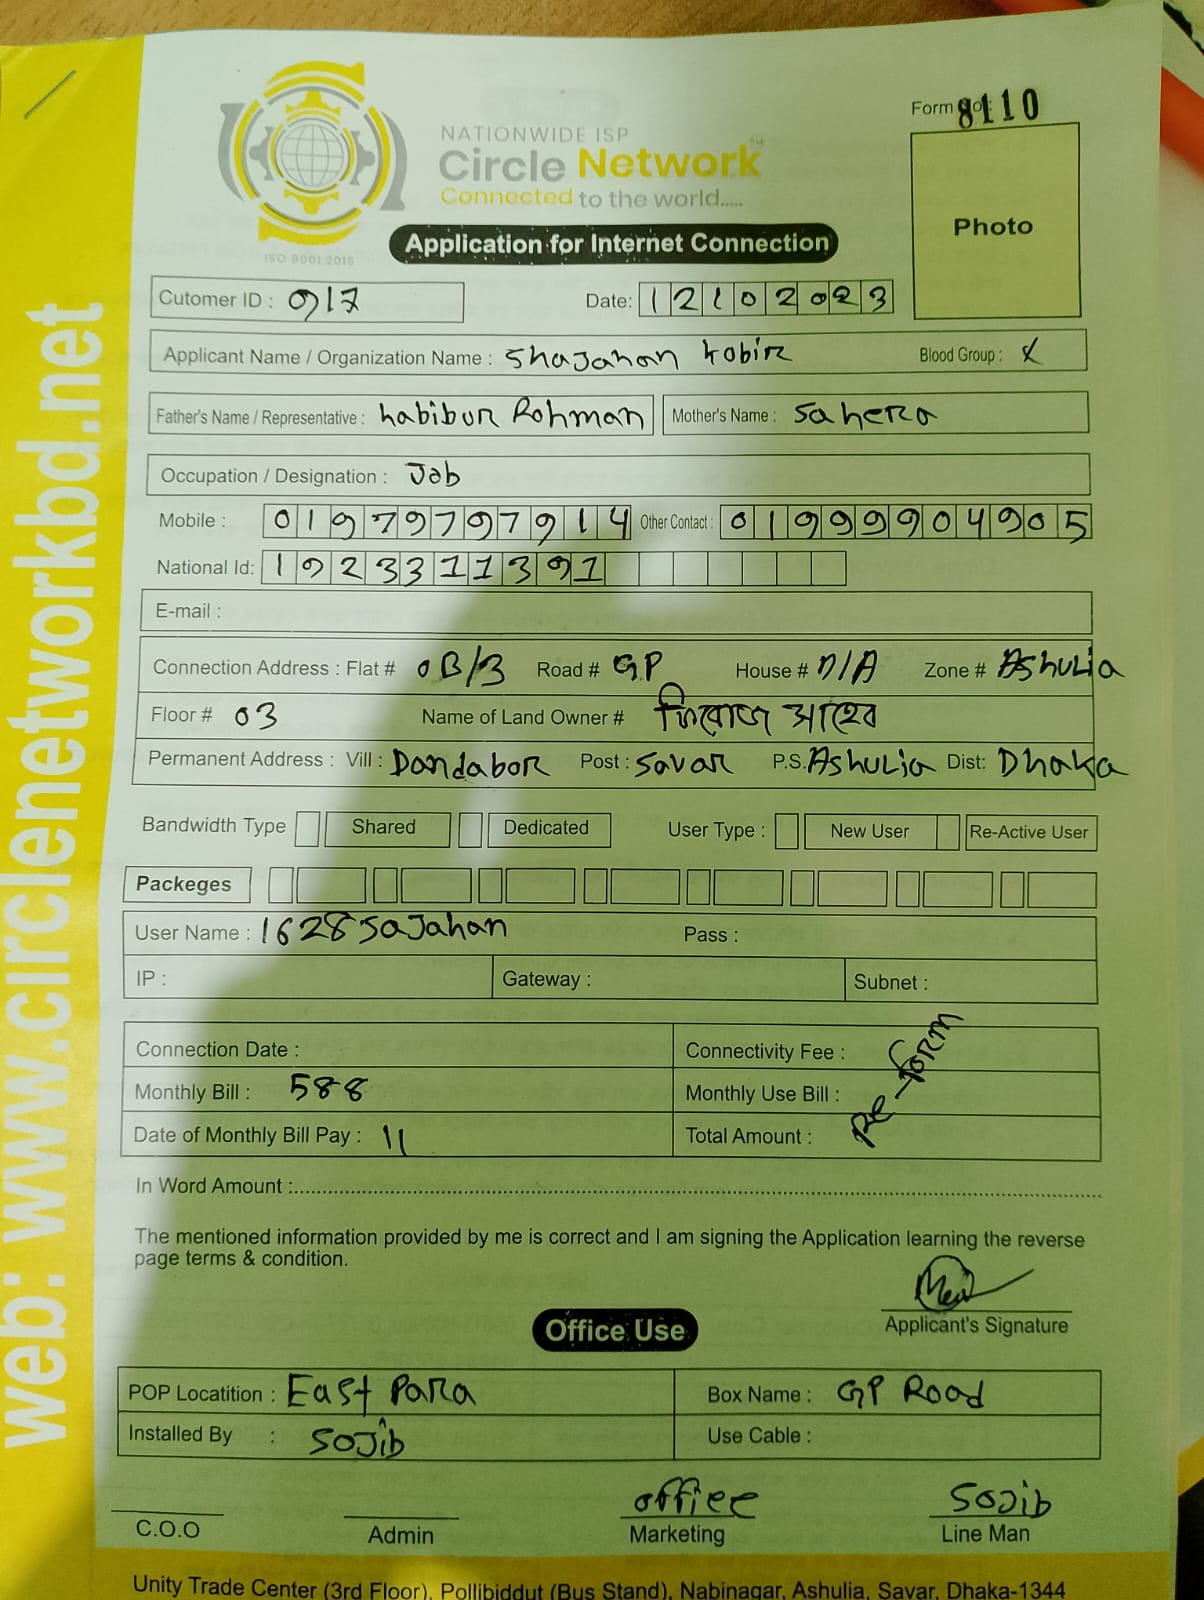 web: www.circlenetworkbd.net
Form no: 8110
NATIONWIDE ISP
Circle Network
Connected to the world.....
ISO 9001:2015
Application for Internet Connection
Photo
Cutomer ID : 917
Date: 12102023
Applicant Name / Organization Name : Shajahan kobir
Blood Group : X
Father's Name / Representative : habibur Rohman
Mother's Name : Sahera
Occupation / Designation : Job
Mobile : 01979797914 Other Contact : 01999904905
National Id: 1923311391
E-mail :
Connection Address : Flat # 0B/3 Road # GP House # N/A Zone # Ashulia
Floor # 03 Name of Land Owner # ফিরোজ সাহেব
Permanent Address : Vill : Dandabor Post : Savar P.S. Ashulia Dist: Dhaka
Bandwidth Type Shared Dedicated User Type : New User Re-Active User
Packeges
User Name : 1628sajahan Pass :
IP : Gateway : Subnet :
Connection Date : Connectivity Fee :
Monthly Bill : 588 Monthly Use Bill :
Date of Monthly Bill Pay : 11 Total Amount :
Re-form
In Word Amount :
The mentioned information provided by me is correct and I am signing the Application learning the reverse
page terms & condition.
Applicant's Signature
Office Use
POP Locatition : East Para Box Name : GP Road
Installed By : Sojib Use Cable :
office Sojib
C.O.O Admin Marketing Line Man
Unity Trade Center (3rd Floor), Pollibiddut (Bus Stand), Nabinagar, Ashulia, Savar, Dhaka-1344